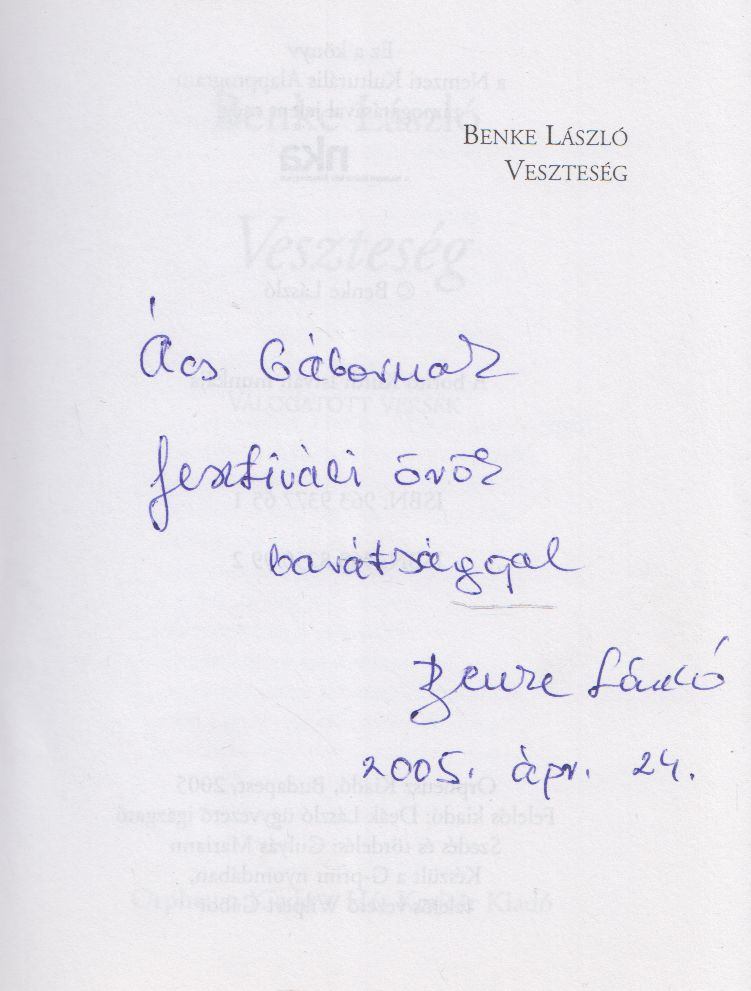 BENKE LÁSZLÓ
VESZTESÉG
Ács Gábornak
fesztiváli örök
barátsággal
Benke László
2005. ápr. 24.